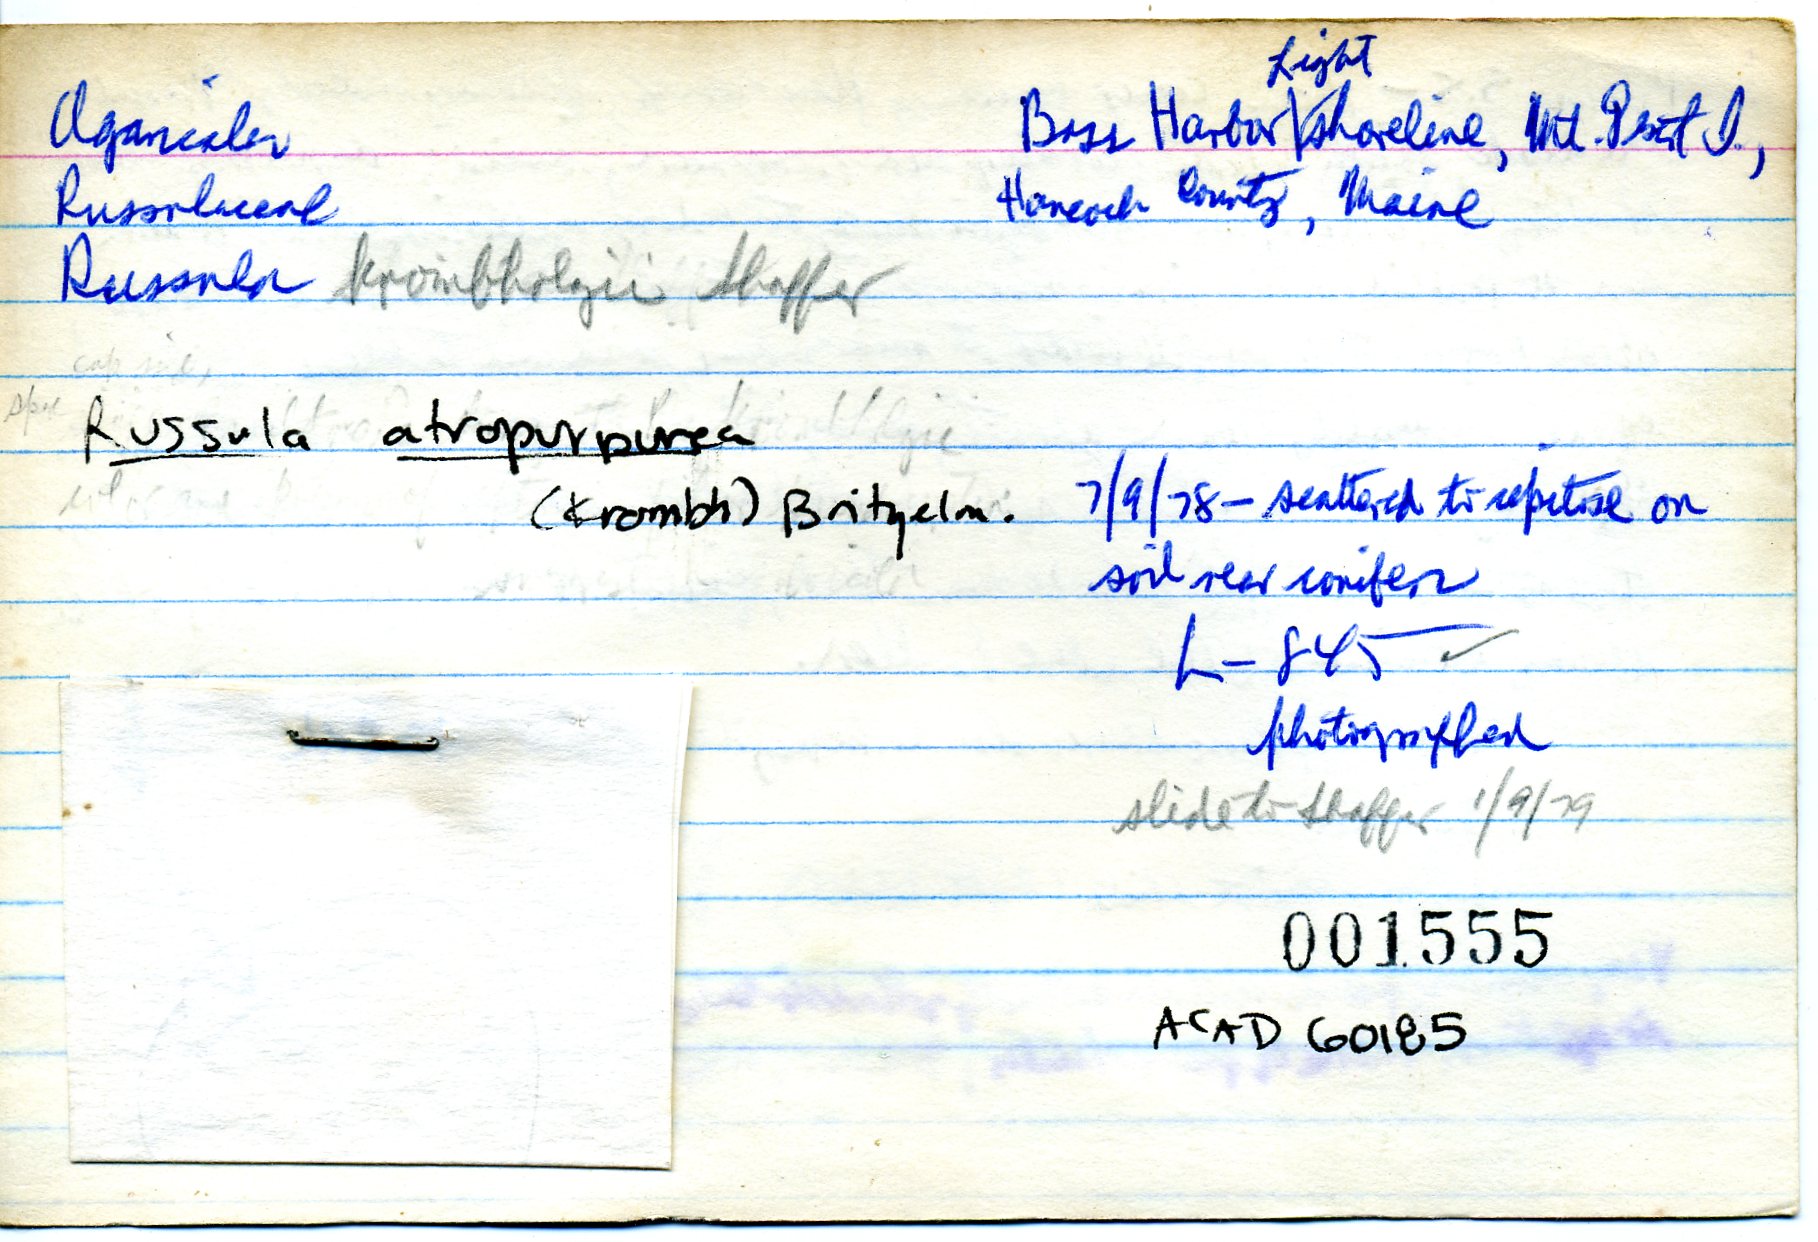 Agaricales
Russulaceae
Russula krombholzii Shaffer
Light
Bass Harbor shoreline, Mt. Desert I.,
Hancock County, Maine
Russula atropurpurea
(Krombh) Britzelm.
7/9/78 – scattered to cespitose on
soil near conifers
L – 845 ✓
photographed
slide to Shaffer 1/9/79
001555
ACAD 60185